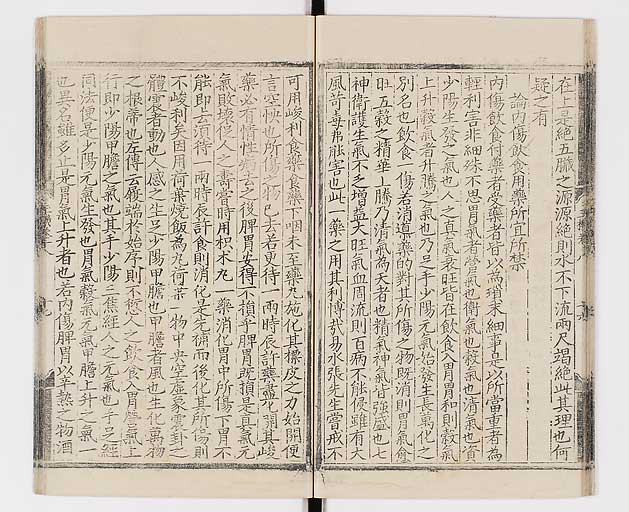 在上是絕五臟之源源絕則水不下流兩尺竭絕此其理也何
疑之有
論内傷飲食用藥所宜所禁
内傷飲食付藥者受藥者皆以為瑣末細事是以所當重者為
輕利害非細殊不思胃氣者營氣也衛氣也穀氣也清氣也資
少陽生發之氣也人之真氣衰旺皆在飲食入胃胃和則穀氣
上升穀氣者升騰之氣也乃足少陽元氣始發生長萬化之
別名也飲食一傷若消導藥的對其所傷之物旣消則胃氣愈
旺五穀之精華上騰乃清氣為天者也精氣神氣皆強盛七
神衛護生氣不乏增益大旺氣血周流則百病不能侵雖有大
風苛毒弗能害也此一藥之用其利博哉易水張先生嘗戒不
可用峻利食藥食藥下咽未至藥丸施化其標皮之力始開便
言空快也所傷之物已去若更待一兩時辰許藥盡化開其峻
藥必有情性病去之後脾胃安得不損乎脾胃旣損是真氣元
氣敗壞促人之壽當時用枳朮丸一藥消化胃中所傷下胃不
能即去須待一兩時辰許食則消化是先補而後化其所傷則
不峻利矣因用荷葉燒飯為丸荷葉一物中央空虛象震卦之
體震者動也人感之生足少陽甲膽也甲膽者風也生化萬物
之根蔕也左傳云履端於始序則不愆人之飲食入胃營氣上
行即少陽甲膽之氣也其手少陽三焦經人之元氣也手足經
同法便是少陽元氣生發也胃氣穀氣元氣甲膽上升之氣一
也異名雖多止是胃氣上升者也若内傷脾胃以辛熱之物酒